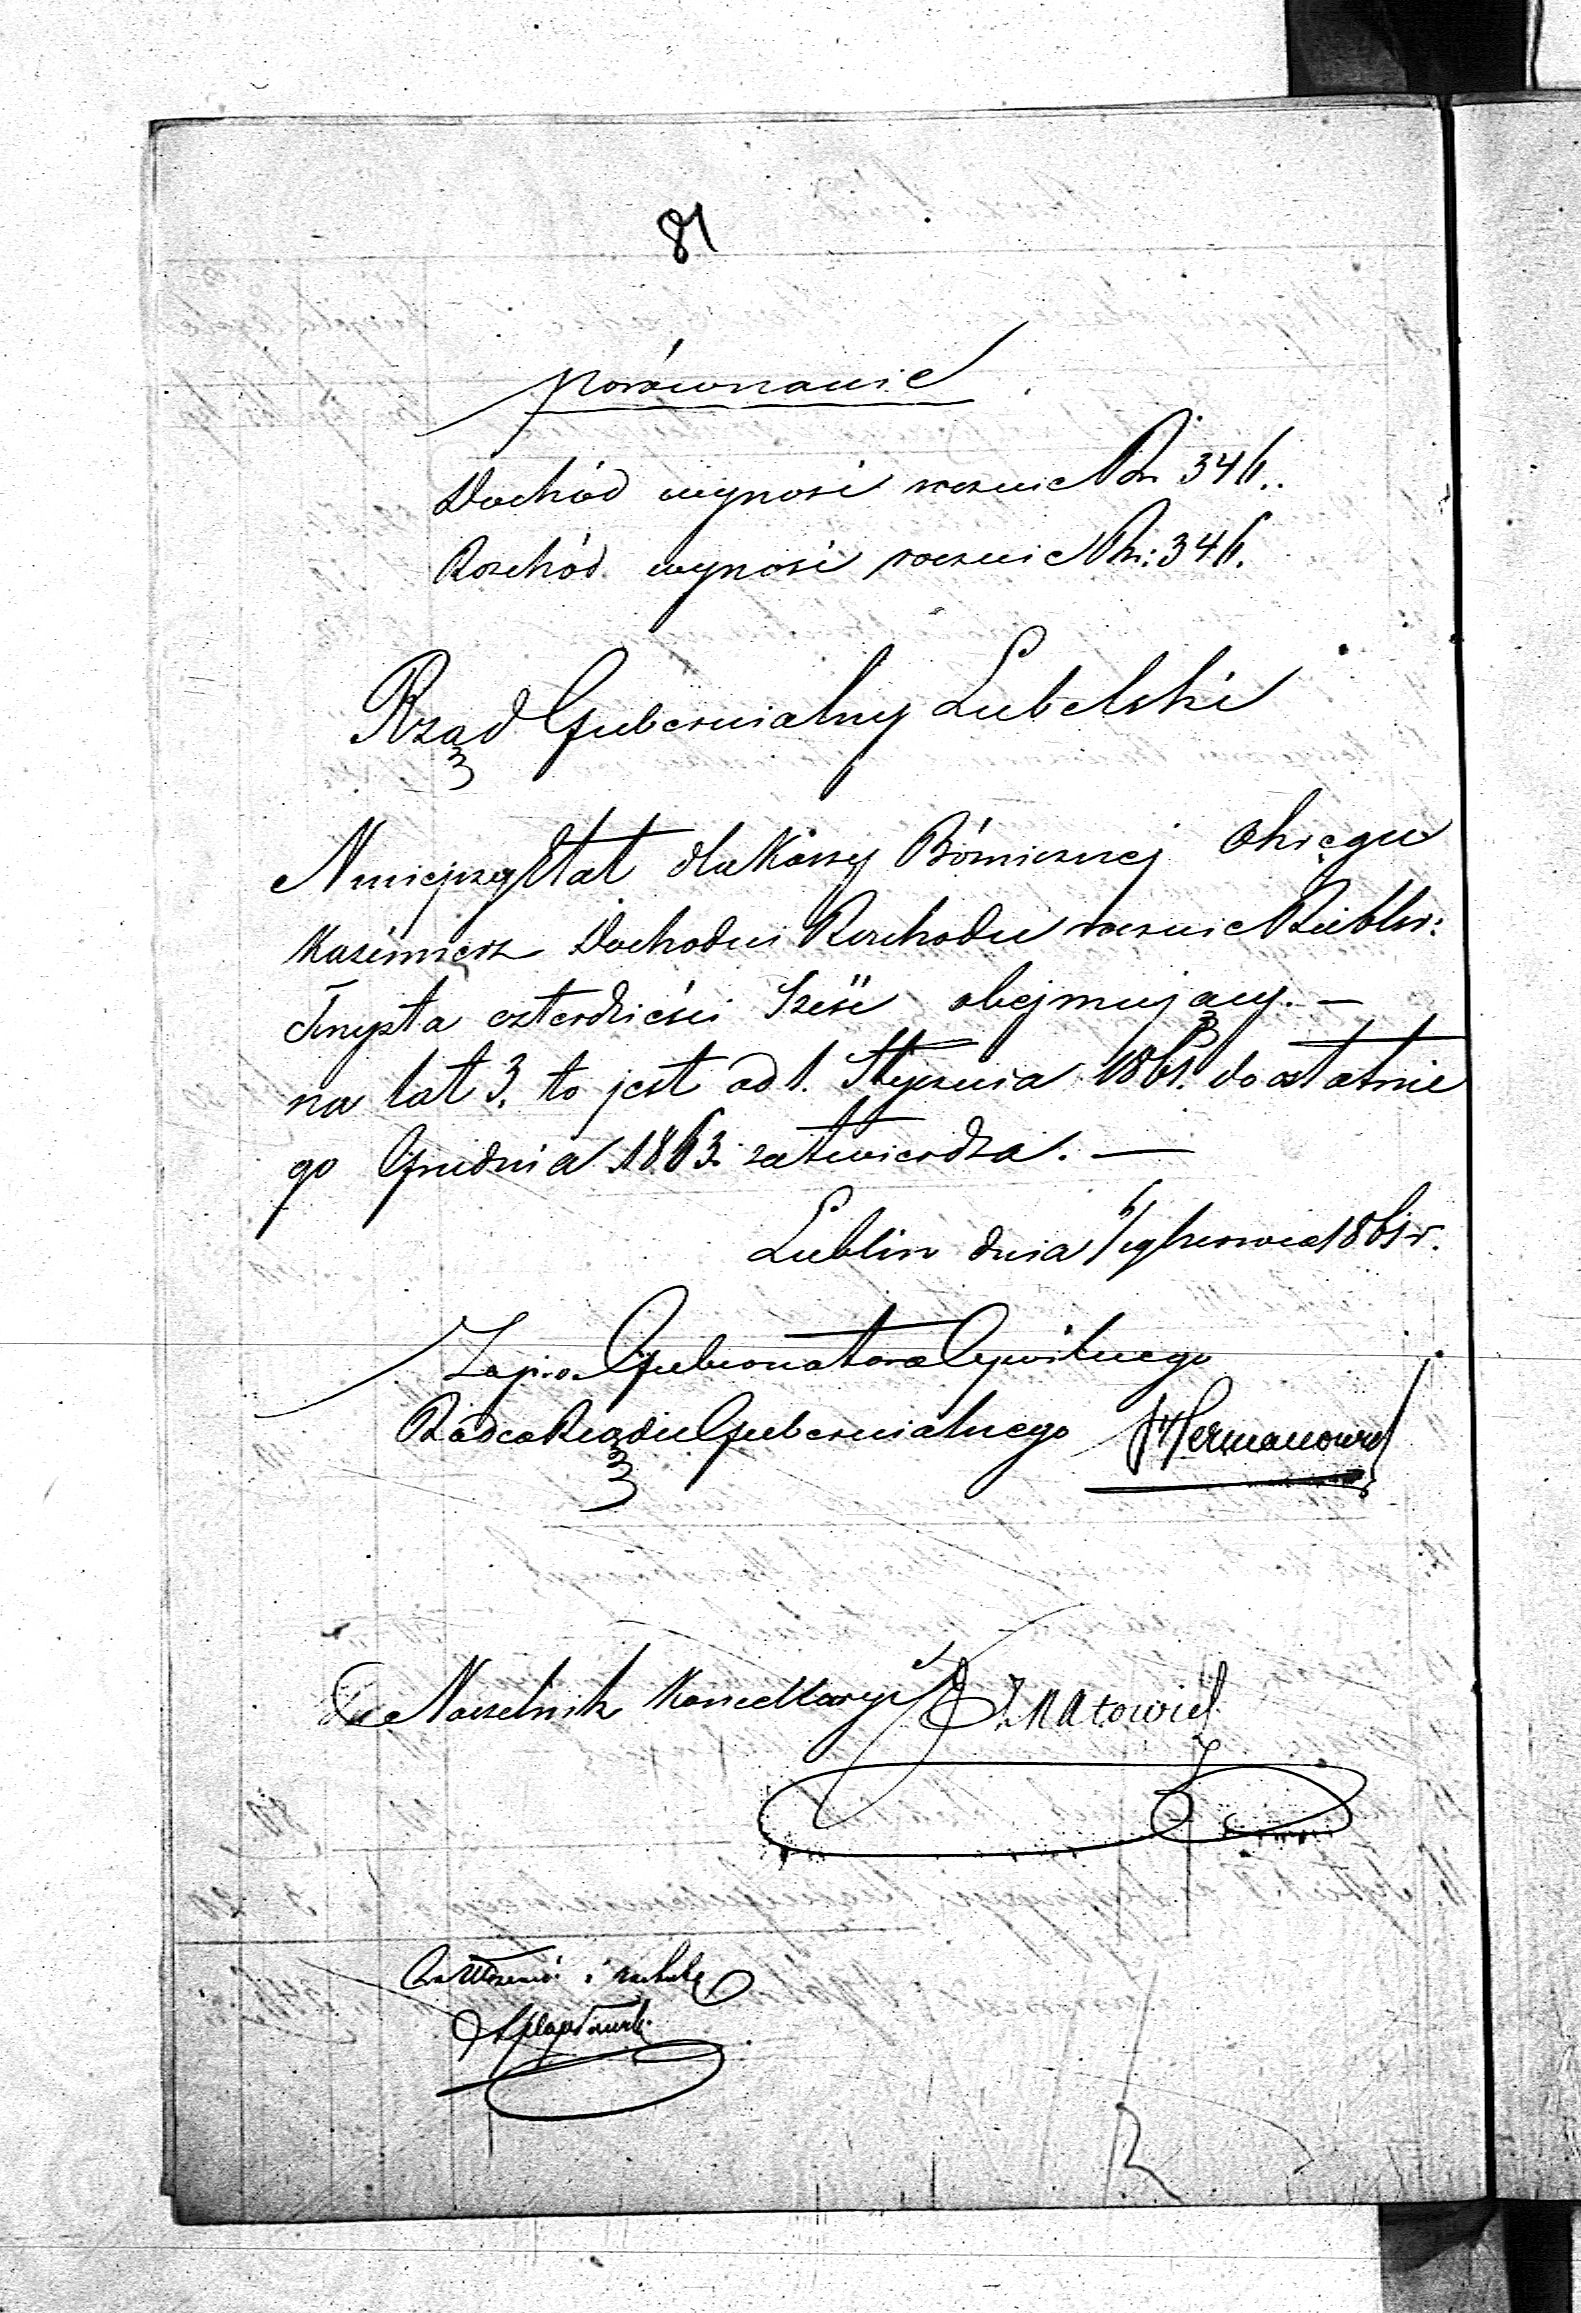 81
Porównanie
Dochód wynosi rocznie Rs. 346.
Rozchód wynosi rocznie Rs: 346.
Rząd Gubernialny Lubelski
Niniejszy Etat dla Kassy Bóżniczej Okręgu
Kazimierz Dochodu i Rozchodu rocznie Rubli sr:
Trzysta czterdzieści sześć obejmujący. —
na lat 3. to jest od 1. Stycznia 1861. do ostatnie
go Grudnia 1863. zatwierdza. —
Lublin dnia Czerwca 1861 r.
Gubernatora Cywilnego
Radca Rządu Gubernialnego
Naczelnik Kancellaryi
i